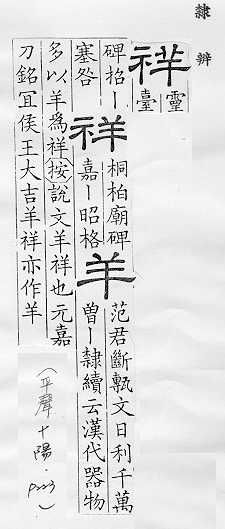 隸辨
祥靈臺
碑招丨祥桐柏廟碑
塞咎嘉丨昭格羊范君斷甎文日利千萬
曾丨隸續云漢代器物
多以羊為祥按說文羊祥也元嘉
刀銘宜侯王大吉羊祥亦作羊
(平聲十陽·P223)